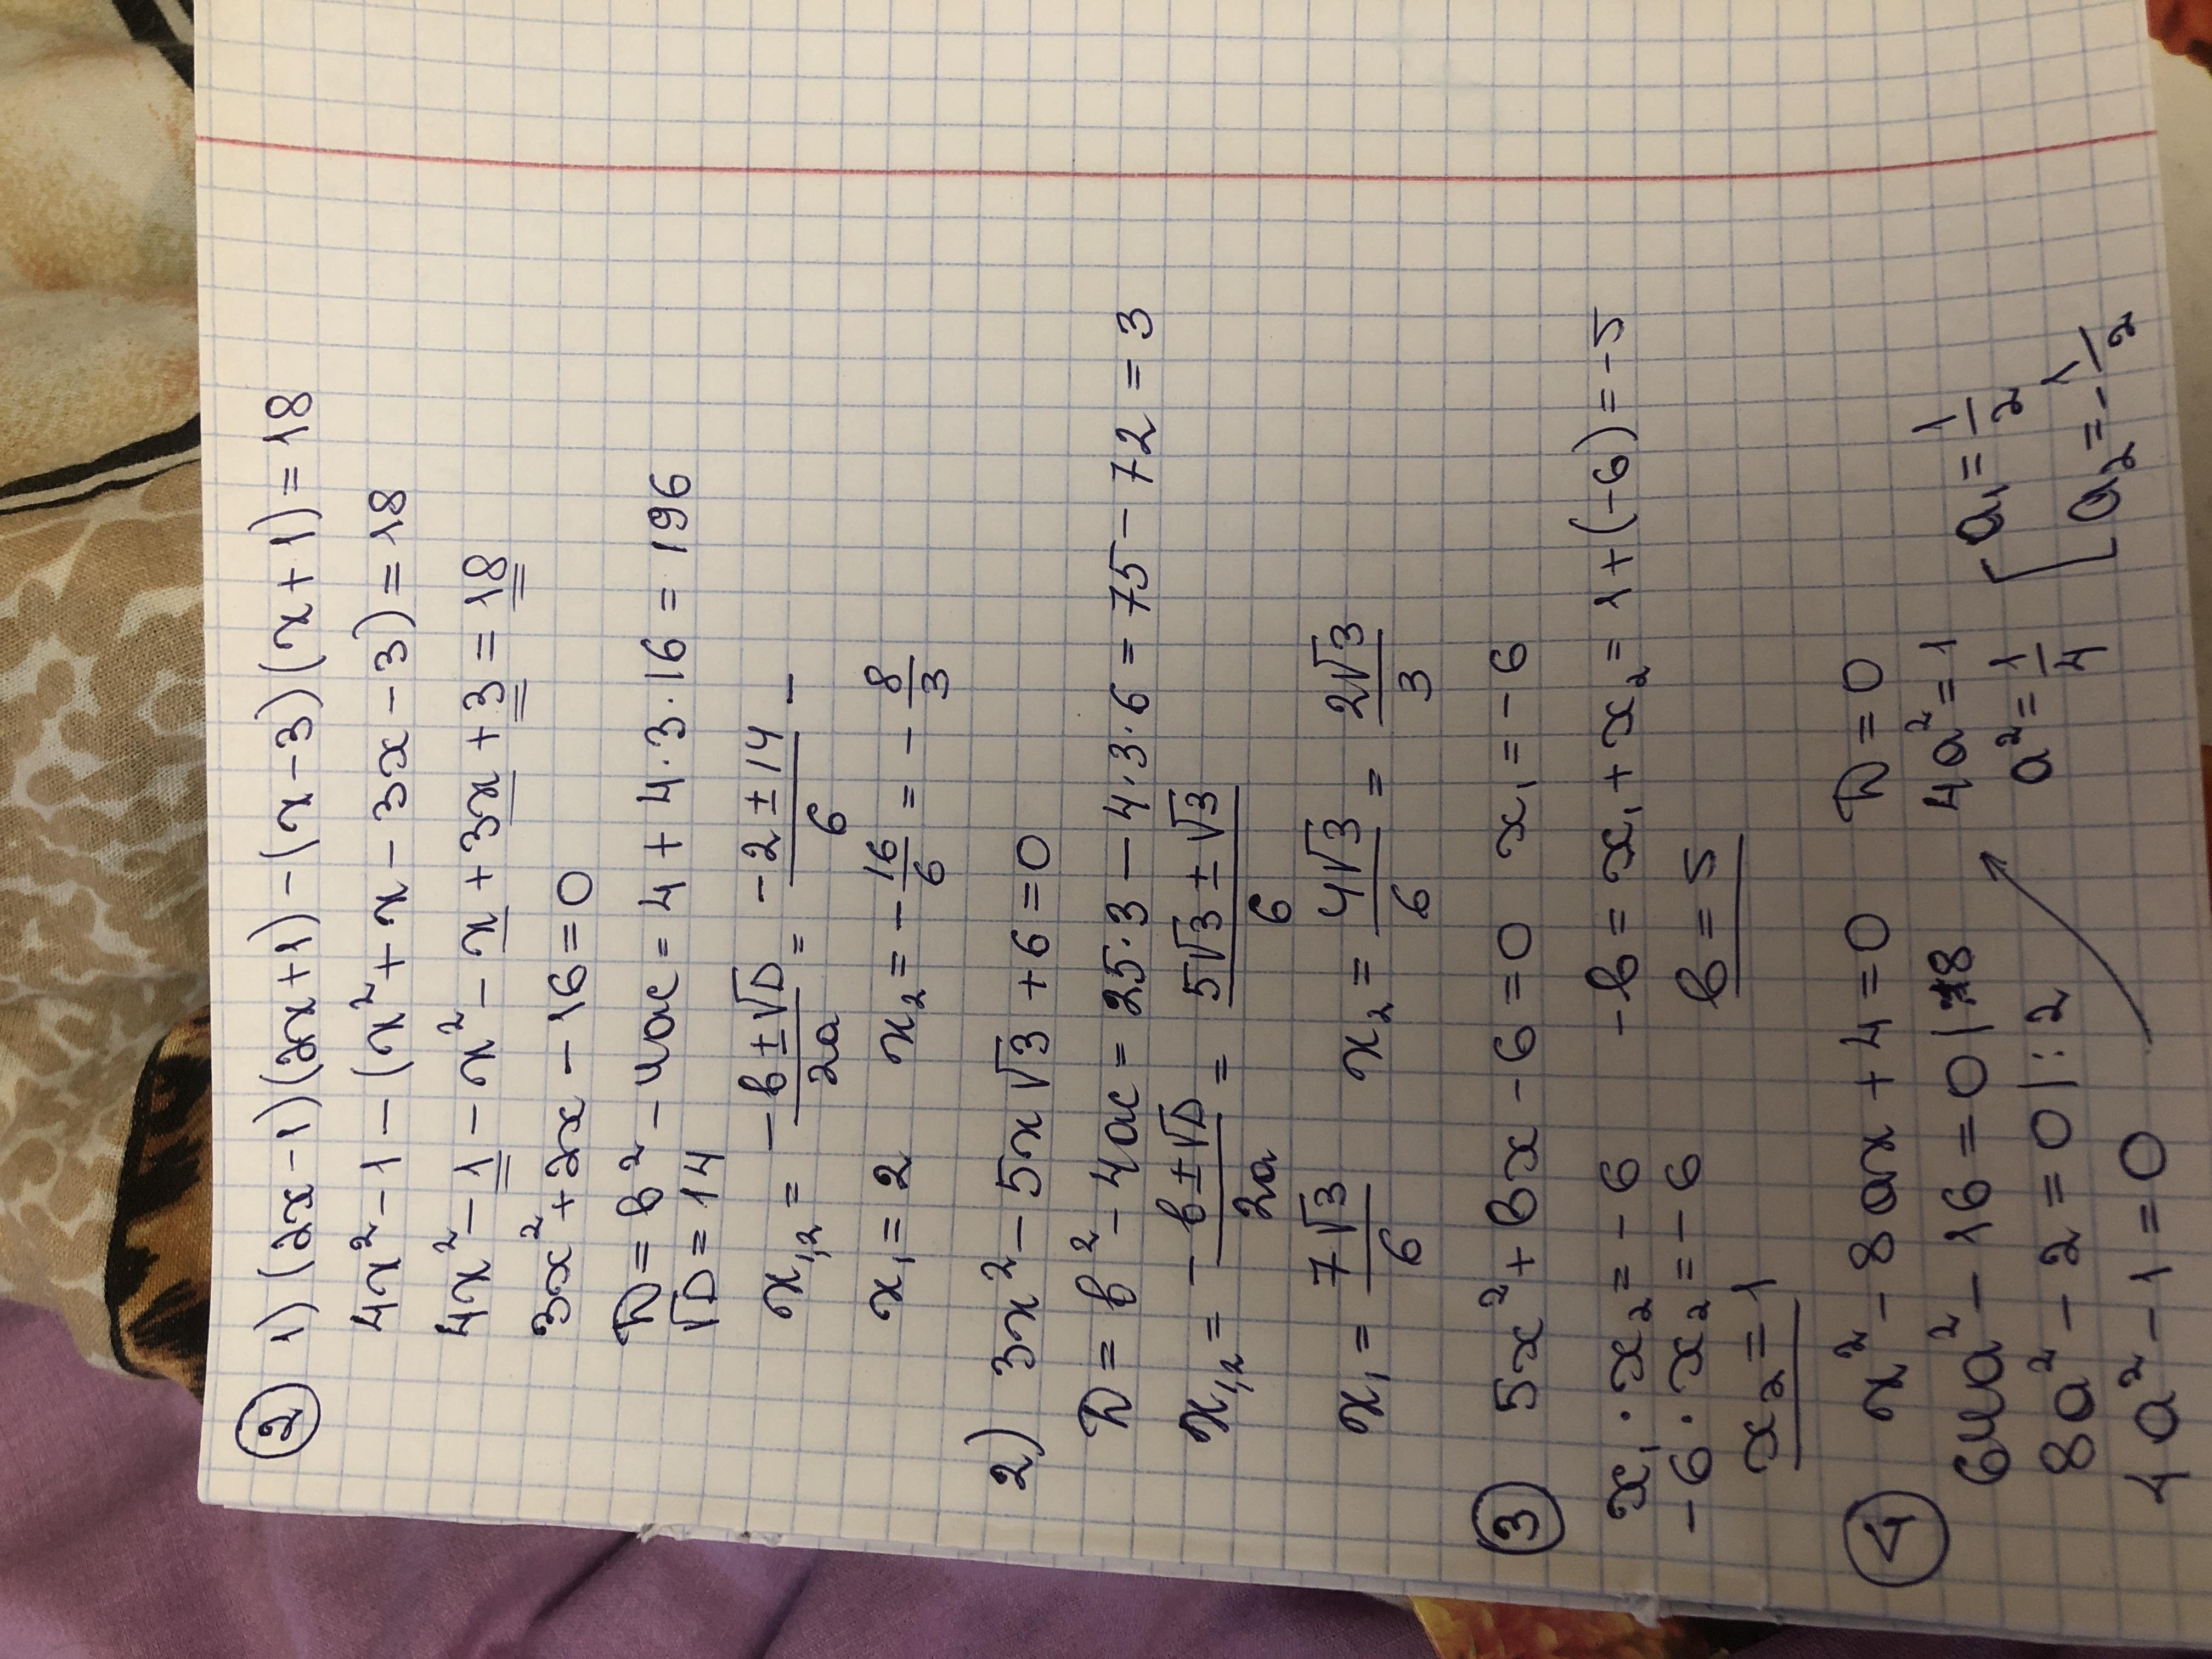 ② 1) (2x-1)(2x+1)-(x-3)(x+1)=18
4x²-1-(x²+x-3x-3)=18
4x²-1-x²-x+3x+3=18
3x²+2x-16=0
D=b²-4ac=4+4·3·16=196
√D=14
x₁,₂= (-b±√D)/2a = (-2±14)/6 -
x₁=2 x₂=-16/6=-8/3
2) 3x²-5x√3+6=0
D=b²-4ac=25·3-4·3·6=75-72=3
x₁,₂= (-b±√D)/2a = (5√3±√3)/6
x₁= 7√3/6 x₂= 4√3/6 = 2√3/3
③ 5x²+bx-6=0 x₁=-6
x₁·x₂=-6 -b=x₁+x₂=1+(-6)=-5
-6·x₂=-6 b=5
x₂=1
④ x²-8ax+4=0 D=0
64a²-16=0|:8 4a²=1
8a²-2=0|:2 a²=1/4 [a₁=1/2
4a²-1=0 a₂=-1/2